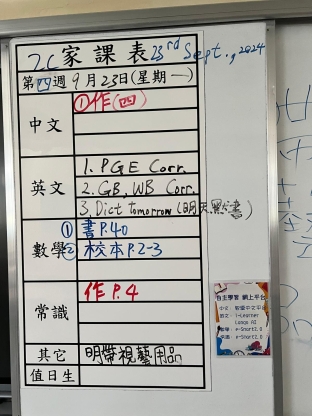 2C 家課表 23rd Sept., 2024
第四週 9月23日(星期一)
中文 ①作(四)
英文 1. PGE Corr.
2. GB, WB Corr.
3. Dict Tomorrow (明天默書)
數學 ① 書P.40
② 校本P.2-3
常識 作P.4
其它 明帶視藝用品
值日生
自主學習 網上平台
i-Learner
e-Smart2.0
e-Smart2.0